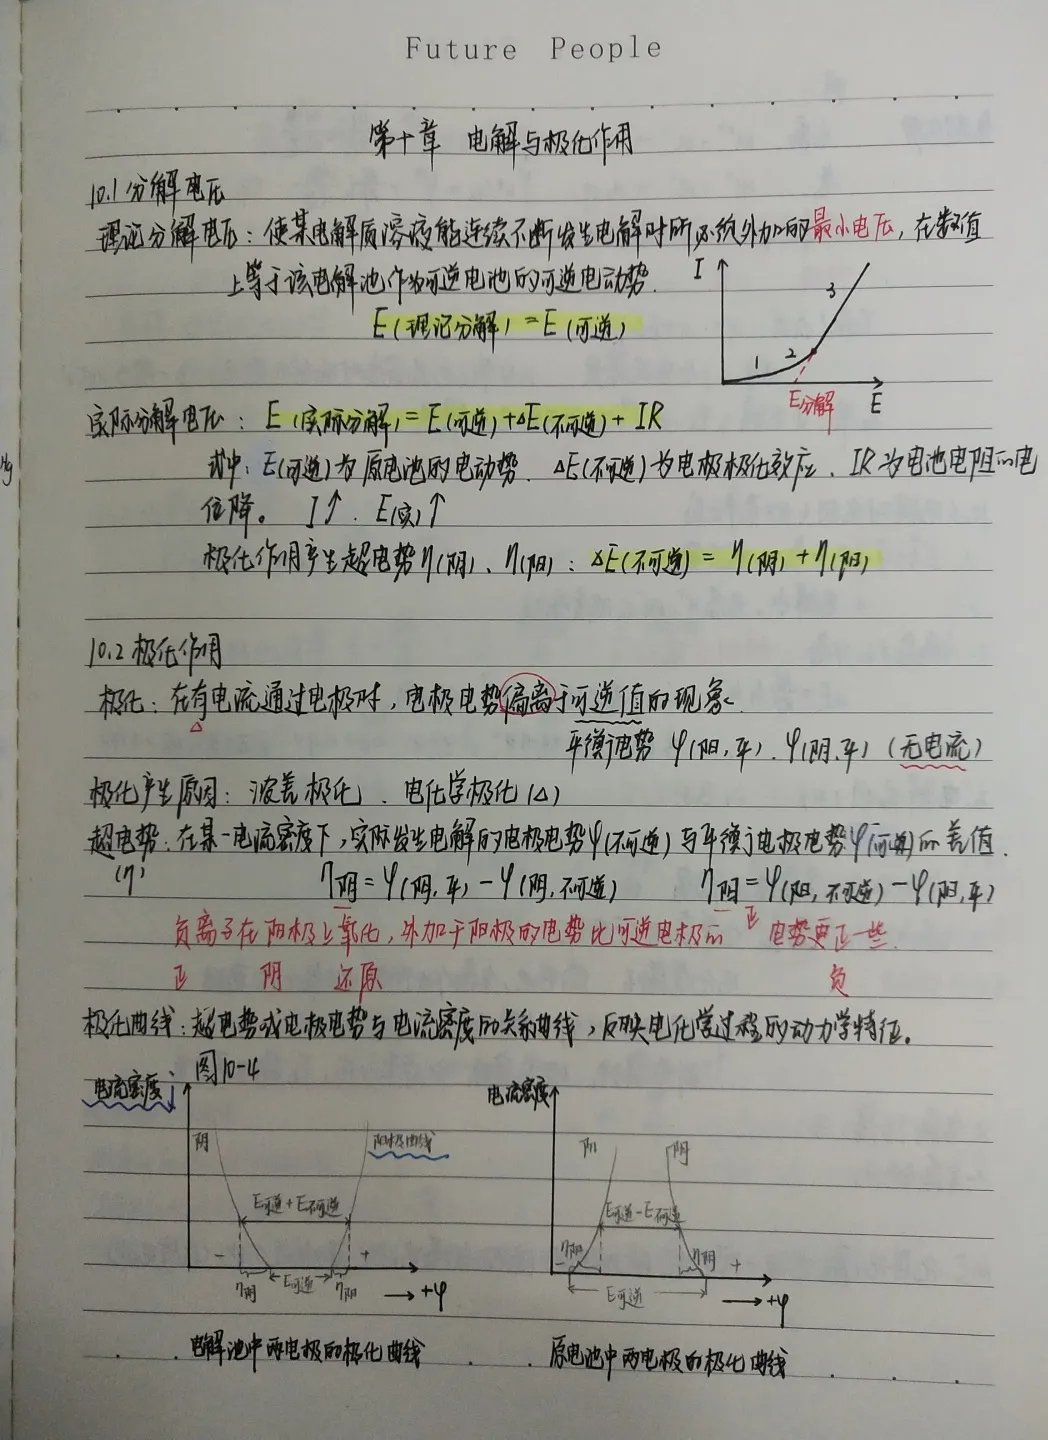 Future People
第十章 电解与极化作用
10.1 分解电压
理论分解电压：使某电解质溶液能连续不断发生电解时所必须外加的最小电压，在数值
上等于该电解池作为可逆电池的可逆电动势.
E(理论分解) = E(可逆)
I
1 2 3
E分解 E
实际分解电压：E(实际分解) = E(可逆) + ΔE(不可逆) + IR
式中：E(可逆)为原电池的电动势、ΔE(不可逆)为电极极化效应、IR为电池电阻的电
位降。 I↑、E(实)↑
极化作用产生超电势η(阴)、η(阳)：ΔE(不可逆) = η(阴) + η(阳)
10.2 极化作用
极化：在有电流通过电极时，电极电势偏离于可逆值的现象.
△
平衡电势 φ(阳,平)、φ(阴,平)(无电流)
极化产生原因：浓差极化、电化学极化(△)
超电势：在某一电流密度下，实际发生电解的电极电势φ(不可逆)与平衡电极电势φ(可逆)的差值.
(η) η阴 = φ(阴,平) − φ(阴,不可逆) η阳 = φ(阳,不可逆) − φ(阳,平)
负离子在阳极上氧化，外加于阳极的电势比可逆电极的正 电势更正一些.
正 阴 还原 负
极化曲线：超电势或电极电势与电流密度的关系曲线，反映电化学过程的动力学特征。
图10-4
电流密度j 电流密度
阴 阳极曲线 阳 阴
E可逆+E不可逆 E可逆−E不可逆
− + − η阳 η阴 +
η阴 E可逆 η阳 → +φ E可逆 → +φ
电解池中两电极的极化曲线 原电池中两电极的极化曲线